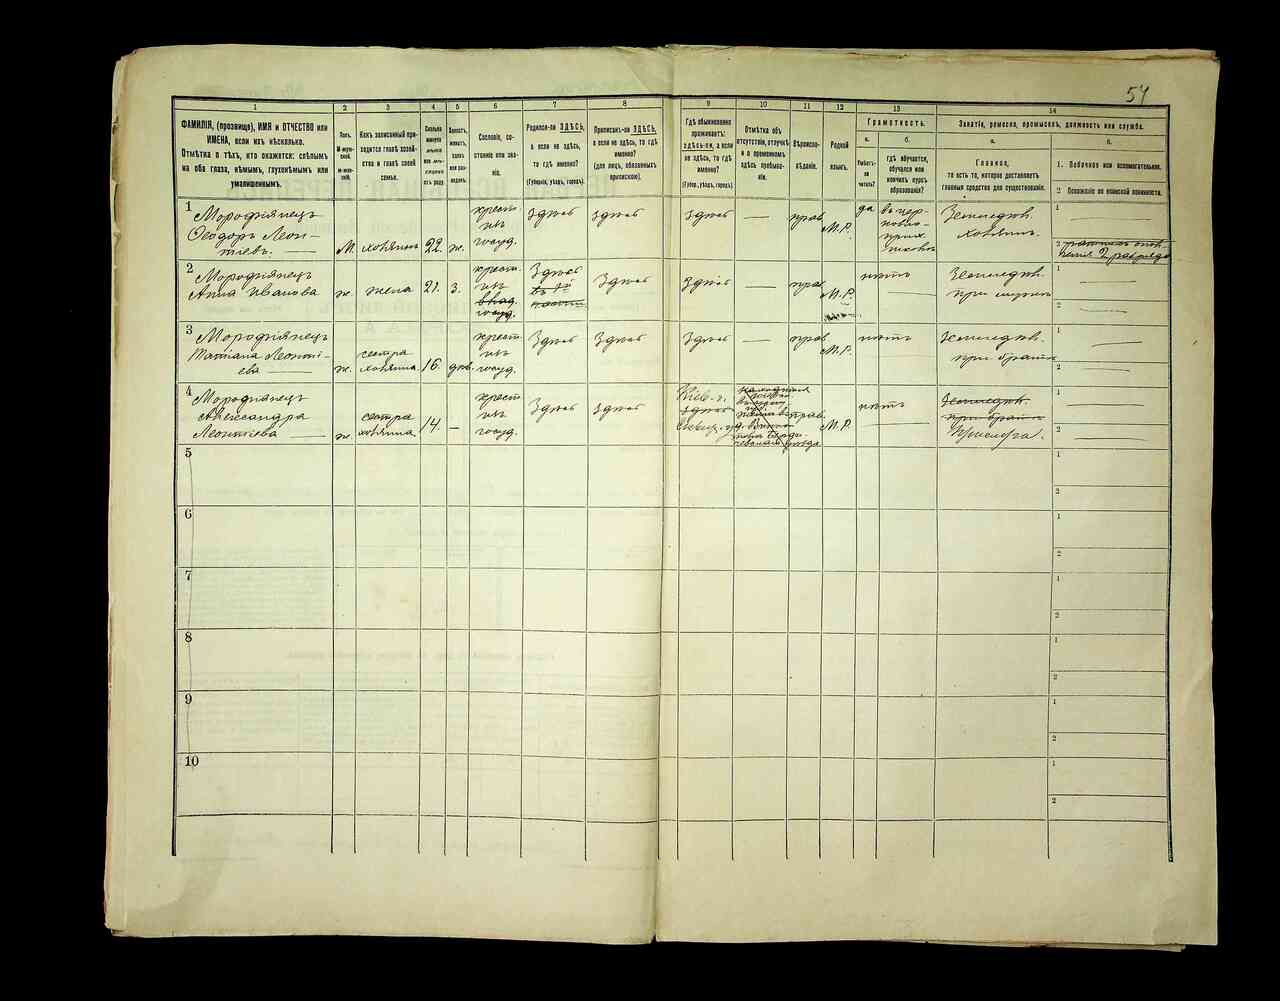 54
1
2
3
4
5
6
7
8
9
10
11
12
13
14
ФАМИЛІЯ, (прозвище), ИМЯ и ОТЧЕСТВО или
ИМЕНА, если ихъ нѣсколько.
Отмѣтка о тѣхъ, кто окажется: слѣпымъ
на оба глаза, нѣмымъ, глухонѣмымъ или
умалишеннымъ.
Полъ.
Какъ записанный при-
ходится главѣ хозяй-
ства и главѣ своей
семьи.
Сколько
минуло
лѣтъ
или мѣ-
сяцевъ
отъ роду.
Сословіе, со-
стояніе или зва-
ніе.
Родился-ли ЗДѢСЬ,
а если не здѣсь,
то гдѣ именно?
(Губернія, уѣздъ, городъ).
Приписанъ-ли ЗДѢСЬ,
а если не здѣсь, то гдѣ
именно?
(для лицъ, обязанныхъ
припискою).
Гдѣ обыкновенно
проживаетъ:
здѣсь-ли, а если
не здѣсь, то гдѣ
именно?
(Губер., уѣздъ, городъ).
Отмѣтка объ
отсутствіи, отлучкѣ
и о временномъ
здѣсь пребыва-
ніи.
Вѣроиспо-
вѣданіе.
Родной
языкъ.
Грамотность.
а.
Умѣетъ-
ли
читать?
б.
гдѣ обучается,
обучался или
кончилъ курсъ
образованія?
Занятіе, ремесло, промыселъ, должность или служба.
а.
Главное,
то есть то, которое доставляетъ
главныя средства для существованія.
б.
1. Побочное или вспомогательное.
2 Положеніе по воинской повинности.
1
Мородіянецъ
Ѳеодоръ Леон-
тіевъ.
М. хозяинъ 22. ж.
крест.
изъ
госуд.
Здѣсь
здѣсь
здѣсь
—
прав.
М.Р.
да
Земледѣл.
хозяинъ.
1
2
2
Мородіянецъ
Анна Иванова
ж. жена 21. з.
крест.
изъ
госуд.
Здѣсь
Здѣсь
Здѣсь
—
прав.
М.Р.
нѣтъ
—
Земледѣл.
при мужѣ
1
2
3
Мородіянецъ
Татіана Леонті-
ева
ж. сестра
хозяина 16. дѣв.
крест.
изъ
госуд.
Здѣсь
Здѣсь
Здѣсь
—
прав.
М.Р.
нѣтъ
—
Земледѣл.
при братѣ
1
2
4
Мородіянецъ
Александра
Леонтіева
ж. сестра
хозяина 14. —
крест.
изъ
госуд.
Здѣсь
здѣсь
Кіев. г.
здѣсь
прав.
М.Р.
нѣтъ
—
Земледѣл.
при братѣ
Прислуга.
1
2
5
1
2
6
1
2
7
1
2
8
1
2
9
1
2
10
1
2